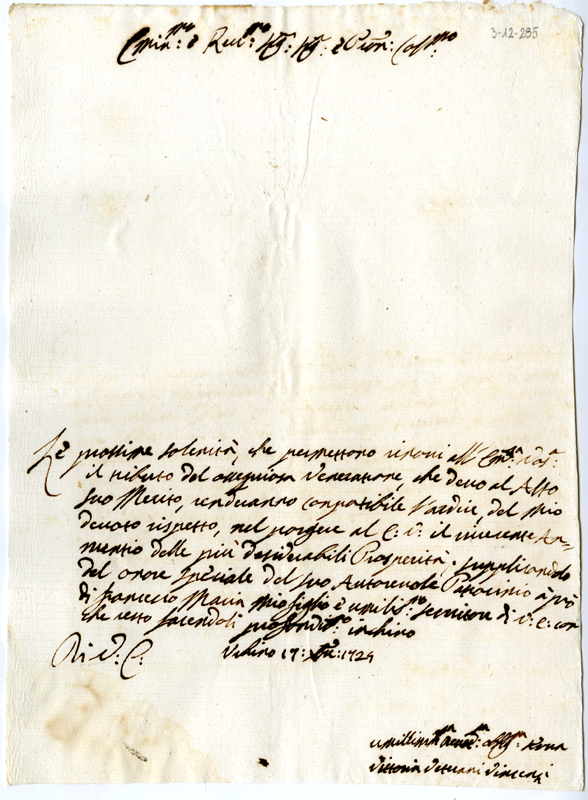 3-12-295
Emin:mo e Reu:mo Sig: Sig: e Pron: Col:mo
Le prossime solenità, che permettono rinoui all' Em:za Vos:
il tributo del ossequiosa Veneratione, che deuo al Alto
suo Merito, renderanno compatibile l'ardire, del mio
deuoto rispetto, nel porgere al E: V: il riuerente An-
nuntio delle più desiderabili Prosperità. supplicandolo
del onore speciale del suo Autoreuole Patrocinio à prò
di francesco Maria mio figlio è umilis:mo seruitore di V: E: con
che resto facendoli profondis:mo inchino
Di V: E: Vrbino 17: Xbre: 1724
umilliss:ma deuot:ma obblig:ma serua
Vittoria Veterani